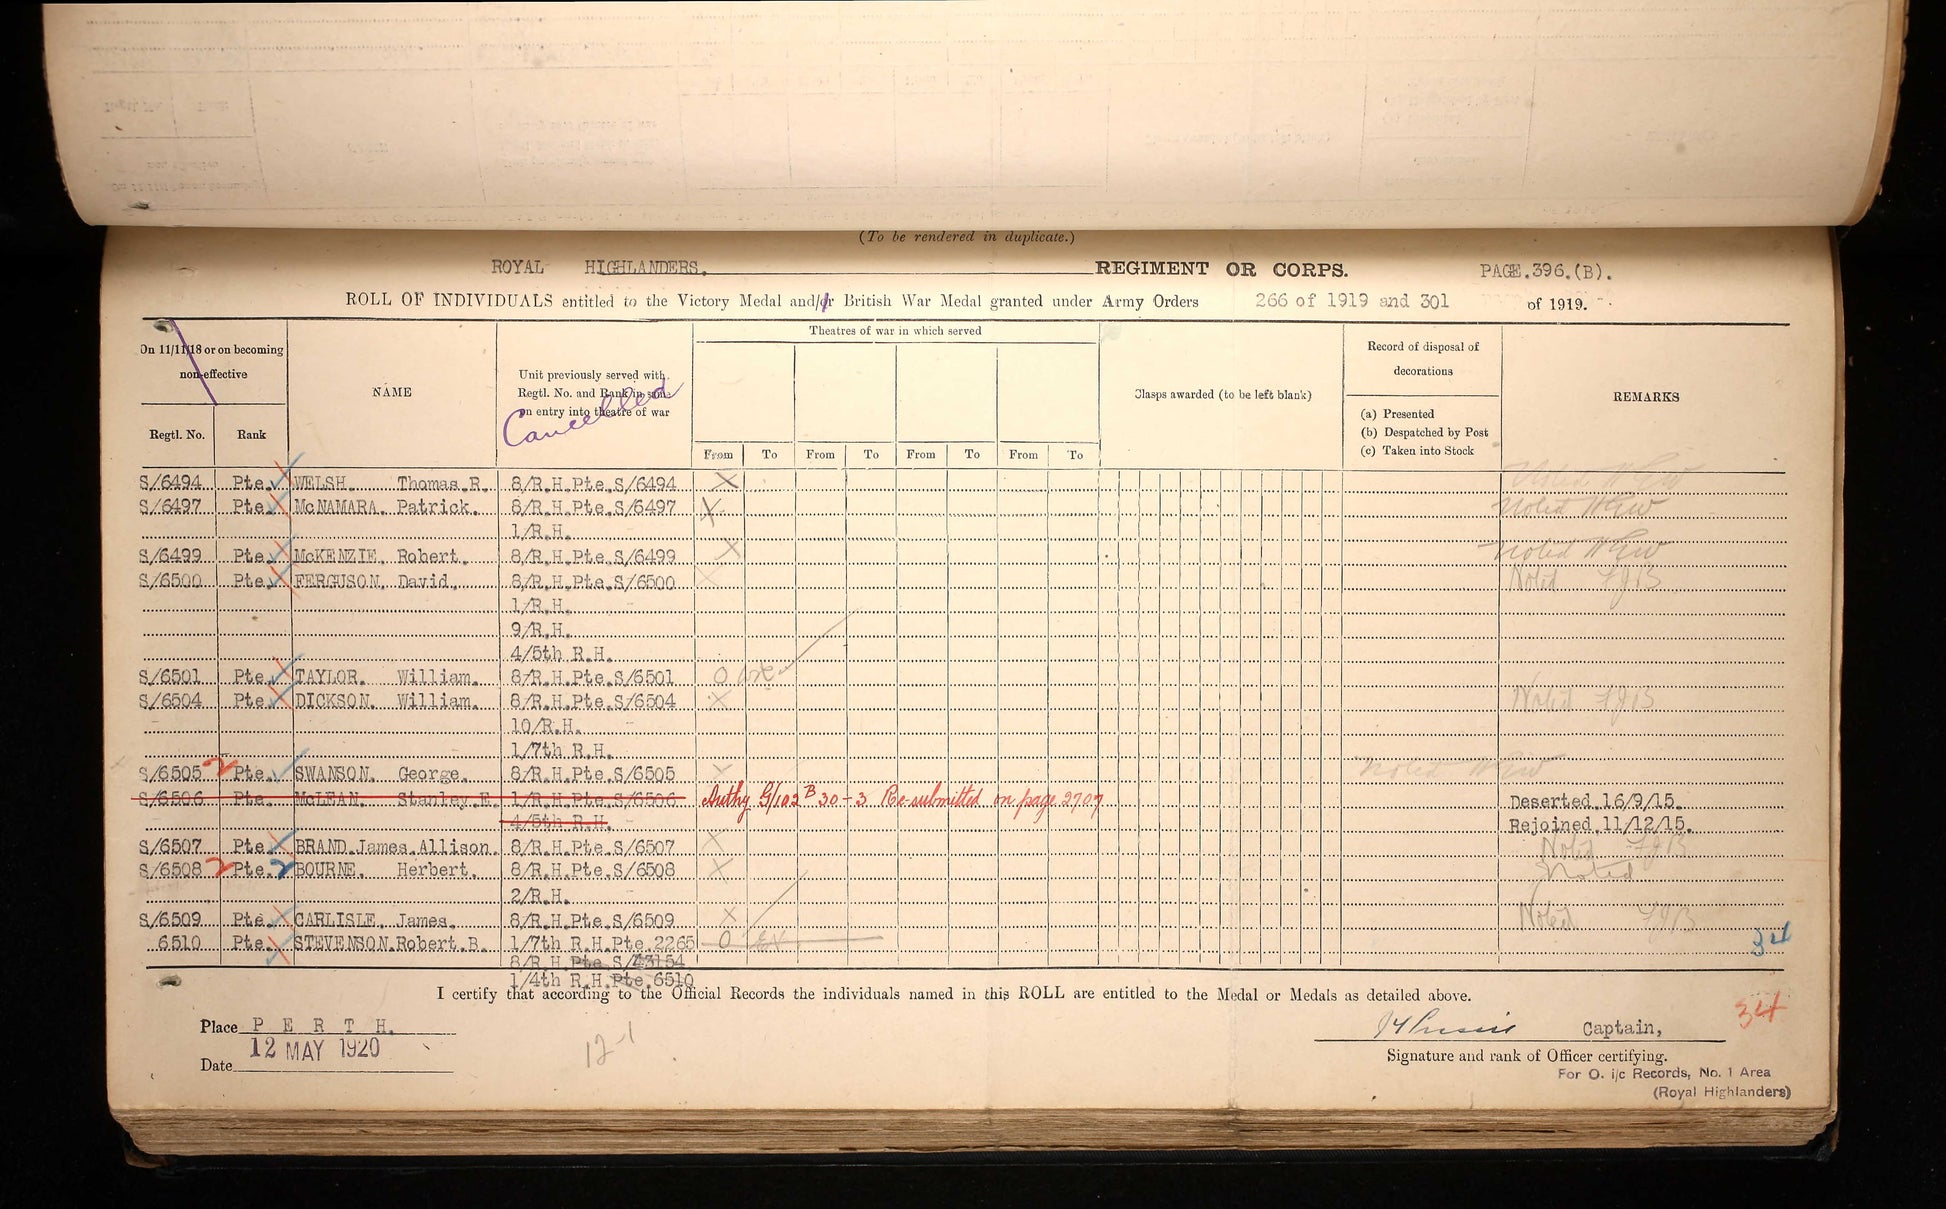 (To be rendered in duplicate.)
ROYAL HIGHLANDERS. REGIMENT OR CORPS. PAGE.396.(B).
ROLL OF INDIVIDUALS entitled to the Victory Medal and/or British War Medal granted under Army Orders 266 of 1919 and 301 of 1919.
On 11/11/18 or on becoming non-effective
Regtl. No. Rank
NAME
Unit previously served with. Regtl. No. and Rank in same on entry into theatre of war
Cancelled
Theatres of war in which served
From To From To From To From To
Clasps awarded (to be left blank)
Record of disposal of decorations
(a) Presented
(b) Despatched by Post
(c) Taken into Stock
REMARKS
S/6494 Pte. WELSH. Thomas.R. 8/R.H.Pte.S/6494 X Noted
S/6497 Pte. McNAMARA. Patrick. 8/R.H.Pte.S/6497 X Noted
1/R.H.
S/6499 Pte. McKENZIE. Robert. 8/R.H.Pte.S/6499 X Noted
S/6500 Pte. FERGUSON. David. 8/R.H.Pte.S/6500 X Noted FJB
1/R.H.
9/R.H.
4/5th R.H.
S/6501 Pte. TAYLOR. William. 8/R.H.Pte.S/6501
S/6504 Pte. DICKSON. William. 8/R.H.Pte.S/6504 X Noted FJB
10/R.H.
1/7th R.H.
S/6505 2 Pte. SWANSON. George. 8/R.H.Pte.S/6505 X Noted
S/6506 Pte. McLEAN. Stanley.E. 1/R.H.Pte.S/6506 Authy G/102 B 30-3 Re-submitted on page 2707 Deserted.16/9/15.
4/5th R.H. Rejoined.11/12/15.
S/6507 Pte. BRAND.James.Allison. 8/R.H.Pte.S/6507 X Noted FJB
S/6508 2 Pte. 2 BOURNE. Herbert. 8/R.H.Pte.S/6508 X Noted
2/R.H.
S/6509 Pte. CARLISLE. James. 8/R.H.Pte.S/6509 X Noted FJB
6510 Pte. STEVENSON.Robert.B. 1/7th R.H.Pte.2265 34
8/R.H.Pte.S/43154
1/4th R.H.Pte.6510
I certify that according to the Official Records the individuals named in this ROLL are entitled to the Medal or Medals as detailed above.
Place P E R T H. Captain, 34
12 MAY 1920
Date
12-1
Signature and rank of Officer certifying.
For O. i/c Records, No. 1 Area
(Royal Highlanders)